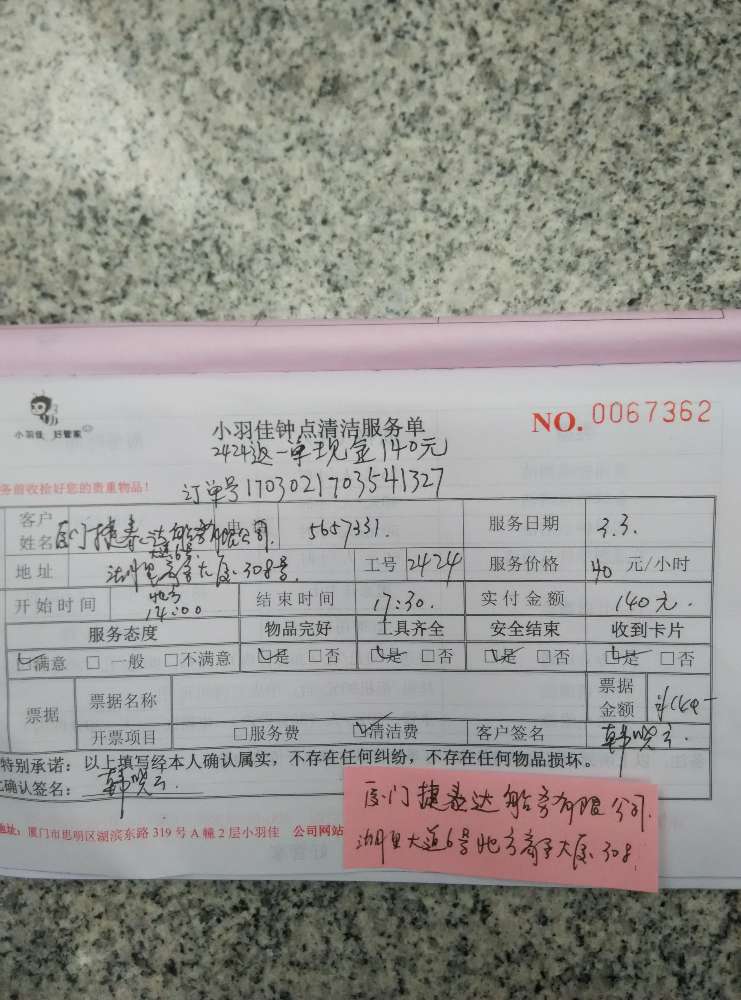 小羽佳 好管家
小羽佳钟点清洁服务单
NO. 0067362
2424返一单现金140元
务前收拾好您的贵重物品!
订单号1703021703541327
客户姓名 厦门捷泰达船务有限公司 电 5657331. 服务日期 3.3.
地址 湖里大道6号 大厦308号 工号 2424 服务价格 40 元/小时
开始时间 14:00 结束时间 17:30. 实付金额 140元.
服务态度 物品完好 工具齐全 安全结束 收到卡片
☑满意 □ 一般 □不满意 ☑是 □否 ☑是 □否 ☑是 □否 ☑是 □否
票据 票据名称 票据金额
开票项目 □服务费 ☑清洁费 客户签名 韩晓云.
特别承诺: 以上填写经本人确认属实,不存在任何纠纷,不存在任何物品损坏。
确认签名: 韩晓云.
地址: 厦门市思明区湖滨东路 319 号 A 幢 2 层小羽佳 公司网站
厦门捷泰达船务有限公司.
湖里大道6号 大厦308